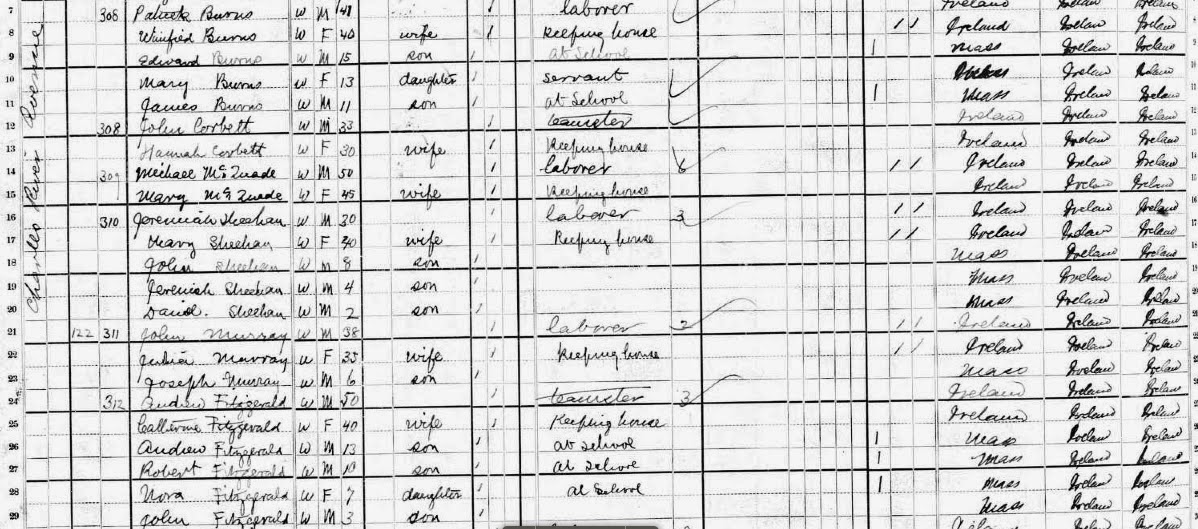 Charles River Avenue
7 308 Patrick Burns W M 47 1 laborer Ireland Ireland Ireland
8 Winifred Burns W F 40 wife 1 Keeping house 1 1 Ireland Ireland Ireland
9 Edward Burns W M 15 son 1 At School 1 Mass Ireland Ireland
10 Mary Burns W F 13 daughter 1 servant Ireland Ireland
11 James Burns W M 11 son 1 at School 1 Mass Ireland Ireland
12 308 John Corbett W M 33 1 teamster Ireland Ireland Ireland
13 Hannah Corbett W F 30 wife 1 Keeping house Ireland Ireland Ireland
14 309 Michael McQuade W M 50 1 laborer 6 1 1 Ireland Ireland Ireland
15 Mary McQuade W F 45 wife 1 Keeping house Ireland Ireland Ireland
16 310 Jeremiah Sheehan W M 30 1 laborer 3 1 1 Ireland Ireland Ireland
17 Mary Sheehan W F 30 wife 1 Keeping house 1 1 Ireland Ireland Ireland
18 John Sheehan W M 8 son 1 Mass Ireland Ireland
19 Jeremiah Sheehan W M 4 son 1 Mass Ireland Ireland
20 Daniel. Sheehan W M 2 son 1 Mass Ireland Ireland
21 122 311 John Murray W M 38 1 laborer 2 1 1 Ireland Ireland Ireland
22 Julia Murray W F 35 wife 1 Keeping house 1 1 Ireland Ireland Ireland
23 Joseph Murray W M 6 son 1 Mass Ireland Ireland
24 312 Andrew Fitzgerald W M 50 1 teamster 3 Ireland Ireland Ireland
25 Catherine Fitzgerald W F 40 wife 1 Keeping house Ireland Ireland Ireland
26 Andrew Fitzgerald W M 13 son 1 at School 1 Mass Ireland Ireland
27 Robert Fitzgerald W M 10 son 1 at School 1 Mass Ireland Ireland
28 Nora Fitzgerald W F 7 daughter 1 at School 1 Mass Ireland Ireland
29 John Fitzgerald W M 3 son 1 Mass Ireland Ireland